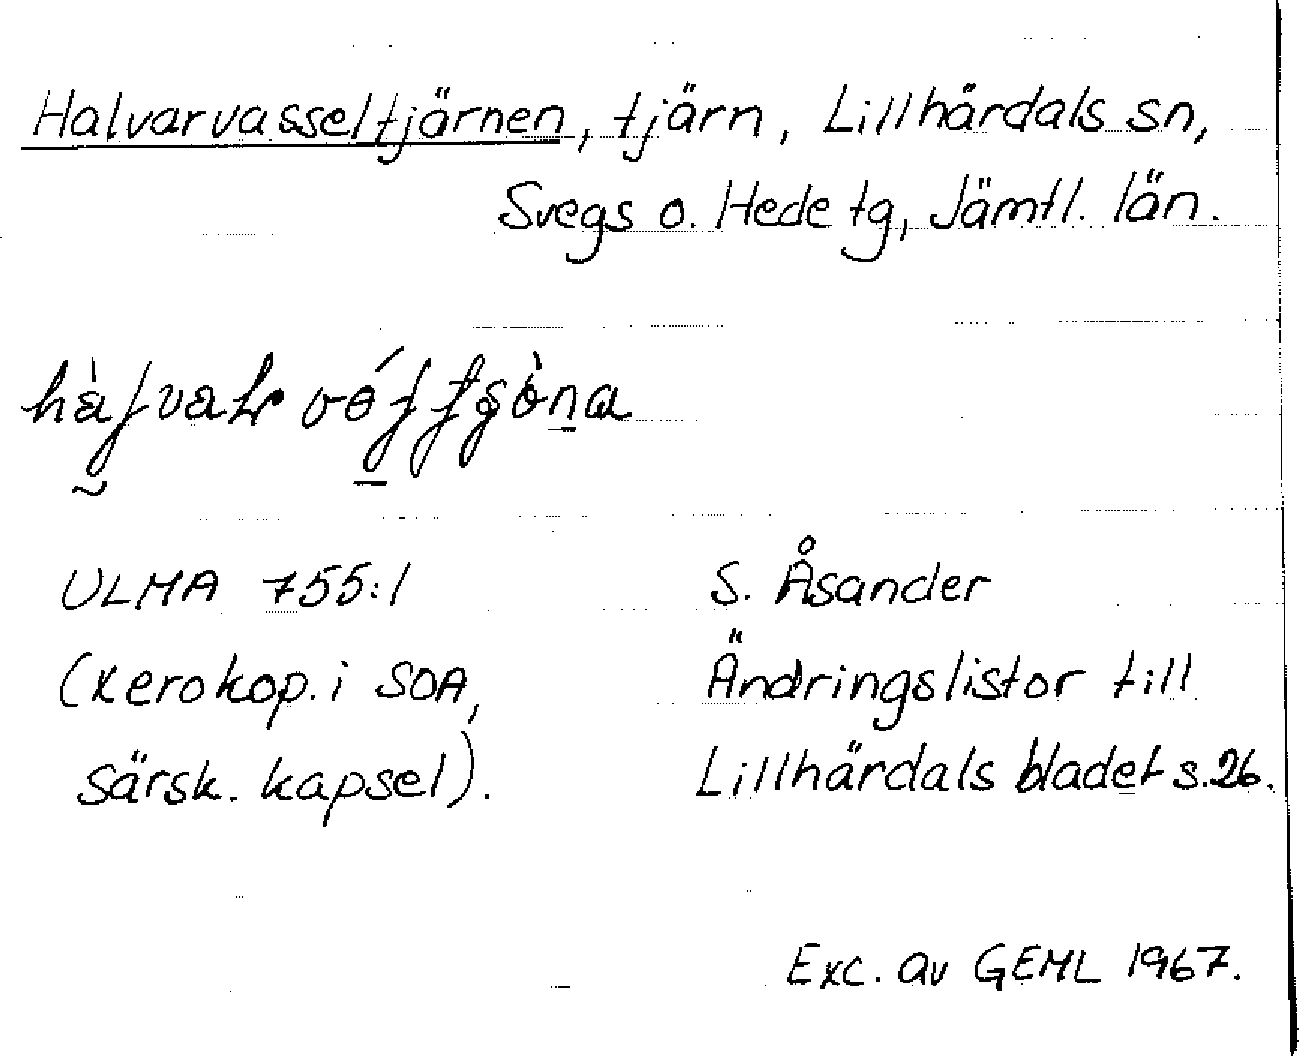 Halvarvasseltjärnen, tjärn, Lillhärdals sn,
Svegs o. Hede tg, Jämtl. län.
ULMA 755:1
(xerokop. i SOA,
särsk. kapsel).
S. Åsander
Ändringslistor till
Lillhärdals bladet s. 26.
Exc. av GEML 1967.